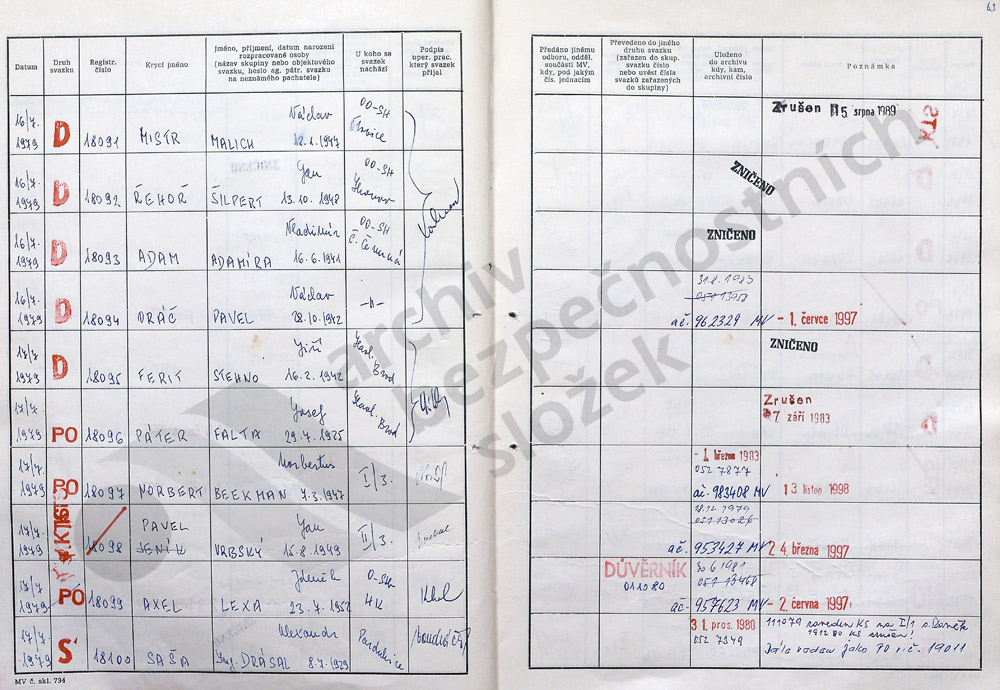 63
Datum
Druh svazku
Registr. číslo
Krycí jméno
Jméno, příjmení, datum narození
rozpracované osoby
(název skupiny nebo objektového
svazku, heslo ag. pátr. svazku
na neznámého pachatele)
U koho se
svazek
nachází
Podpis
oper. prac.
který svazek
přijal
Předáno jinému
odboru, odděl.
součásti MV,
kdy, pod jakým
čís. jednacím
Převedeno do jiného
druhu svazku
(zařazen do skup.
svazku číslo
nebo uvést čísla
svazků zařazených
do skupiny)
Uloženo
do archivu
kdy, kam,
archivní číslo
Poznámka
16/7. 1979 D 18091 MISTR Václav MALICH 12.1.1947 OO-SH
Zrušen 15 srpna 1989
16/7. 1979 D 18092 ŘEHOŘ Jan ŠILPERT 13.10.1948 OO-SH
ZNIČENO
16/7. 1979 D 18093 ADAM Vladimír ADAMÍRA 16.6.1941 OO-SH
ZNIČENO
16/7. 1979 D 18094 DRÁČ Václav PAVEL 28.10.1942 -"-
31.8.1983
ač. 962329 MV - 1. července 1997
17/7. 1979 D 18095 FERIT Jiří STEHNO 16.2.1942 Havl. Brod
ZNIČENO
17/7. 1979 PO 18096 PÁTER Josef FALTA 29.4.1925 Havl. Brod
Zrušen
7 září 1983
17/7. 1979 PO 18097 NORBERT Norbertus BEEKMAN 7.3.1947 I/3.
- 1 březen 1983
052 7877
ač. 983408 MV 13. listop 1998
17/7. 1979 KTS 18098 PAVEL JENÍK Jan VRBSKÝ 15.8.1949 II/3.
18.12.1979
051 13086
ač. 953427 MV 24. března 1997
17/7. 1979 PO 18099 AXEL Zdeněk LEXA 23.7.1952 O-SH HK
DŮVĚRNÍK
011080
30 6 1981
051 13460
ač. 957623 MV - 2. června 1997
17/7. 1979 S 18100 SAŠA Alexandr Ing. DRÁSAL 8.7.1929 Pardubice
31. pros. 1980
052 7349
111079 zaveden KS na I/1
191280 KS zrušen!
Dále veden jako PO r.č. 19011
MV č. skl. 734
archiv
bezpečnostních
složek